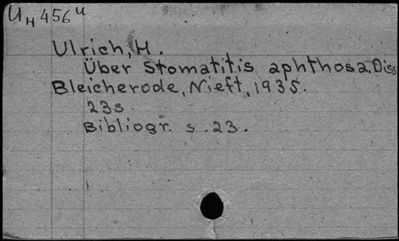 UH456u
Ulrich, H.
Über Stomatitis aphthosa. Diss
Bleicherode, Nieft, 1935.
23s.
Bibliogr. s. 23.